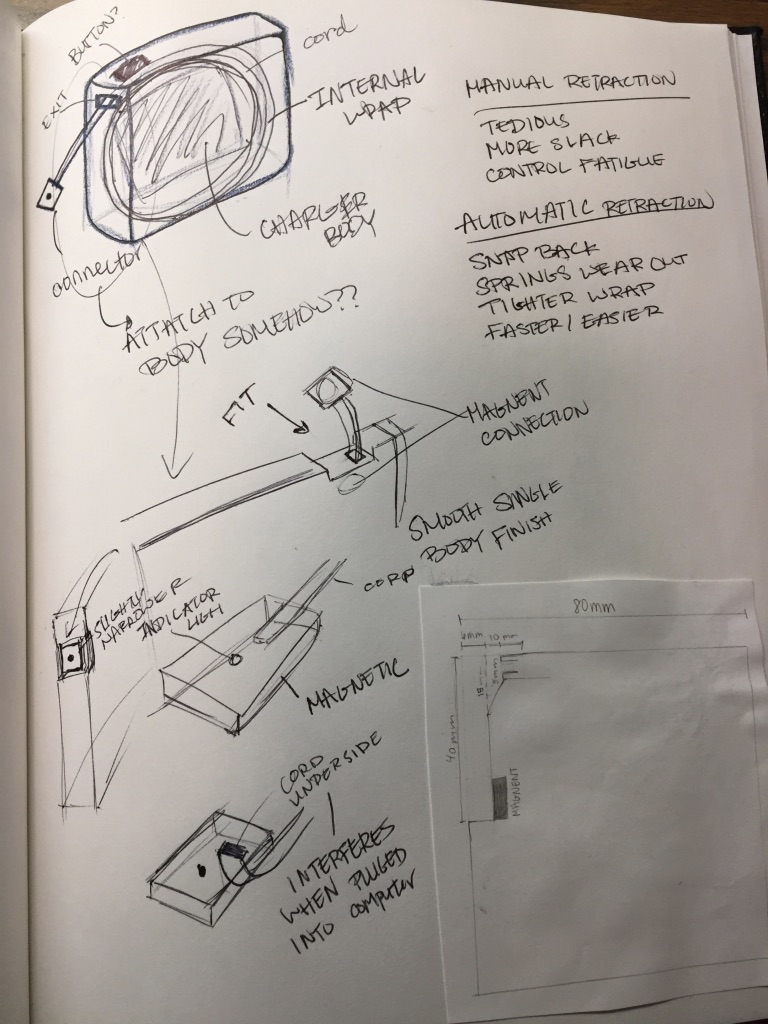 BUTTON?
EXIT
cord
INTERNAL
WRAP
CHARGER
BODY
connector
ATTATCH TO
BODY SOMEHOW??
MANUAL RETRACTION
TEDIOUS
MORE SLACK
CONTROL FATIGUE
AUTOMATIC RETRACTION
SNAP BACK
SPRINGS WEAR OUT
TIGHTER WRAP
FASTER / EASIER
FIT
MAGNENT
CONNECTION
SMOOTH SINGLE
BODY FINISH
CORD
SLIGHTLY
NARROWER
INDICATOR
LIGH
MAGNETIC
CORD
UNDERSIDE
INTERFERES
WHEN PLUGED
INTO computer
80mm
6mm
10mm
5mm
18mm
40mm
MAGNENT